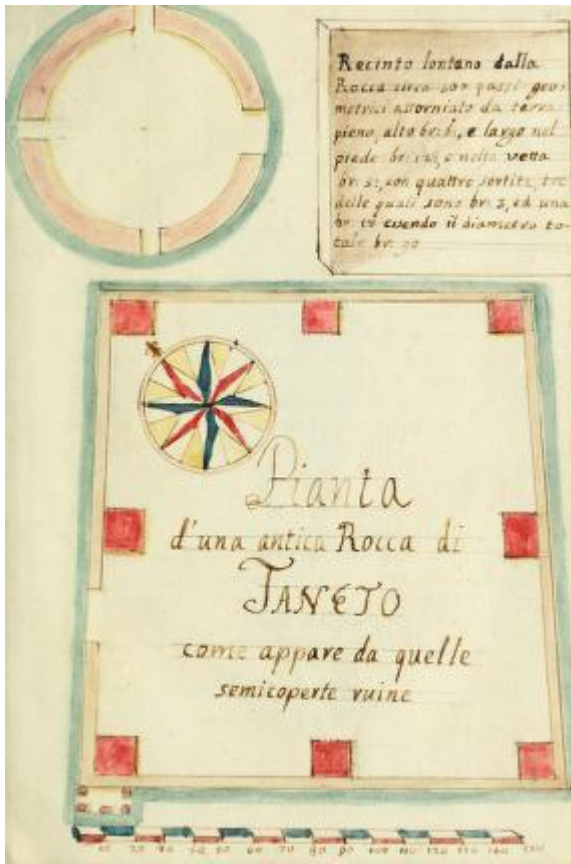 Recinto lontano dalla
Rocca circa 500 passi geo=
metrici attorniato da terra
pieno, alto br: 6:, e largo nel
piede br: e nella vetta
br: 5:, con quattro sortite, tre
delle quali sono br: 5, ed una
br: essendo il diametro to=
tale br: 90
Pianta
d'una antica Rocca di
TANETO
come appare da quelle
semicoperte ruine
10 20 30 40 50 60 70 80 90 100 110 120 130 140 150